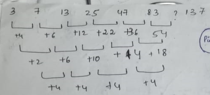 3 7 13 25 47 83 → 137
+4 +6 +12 +22 +36 54
+2 +6 +10 +14 +18
+4 +4 +4 +4